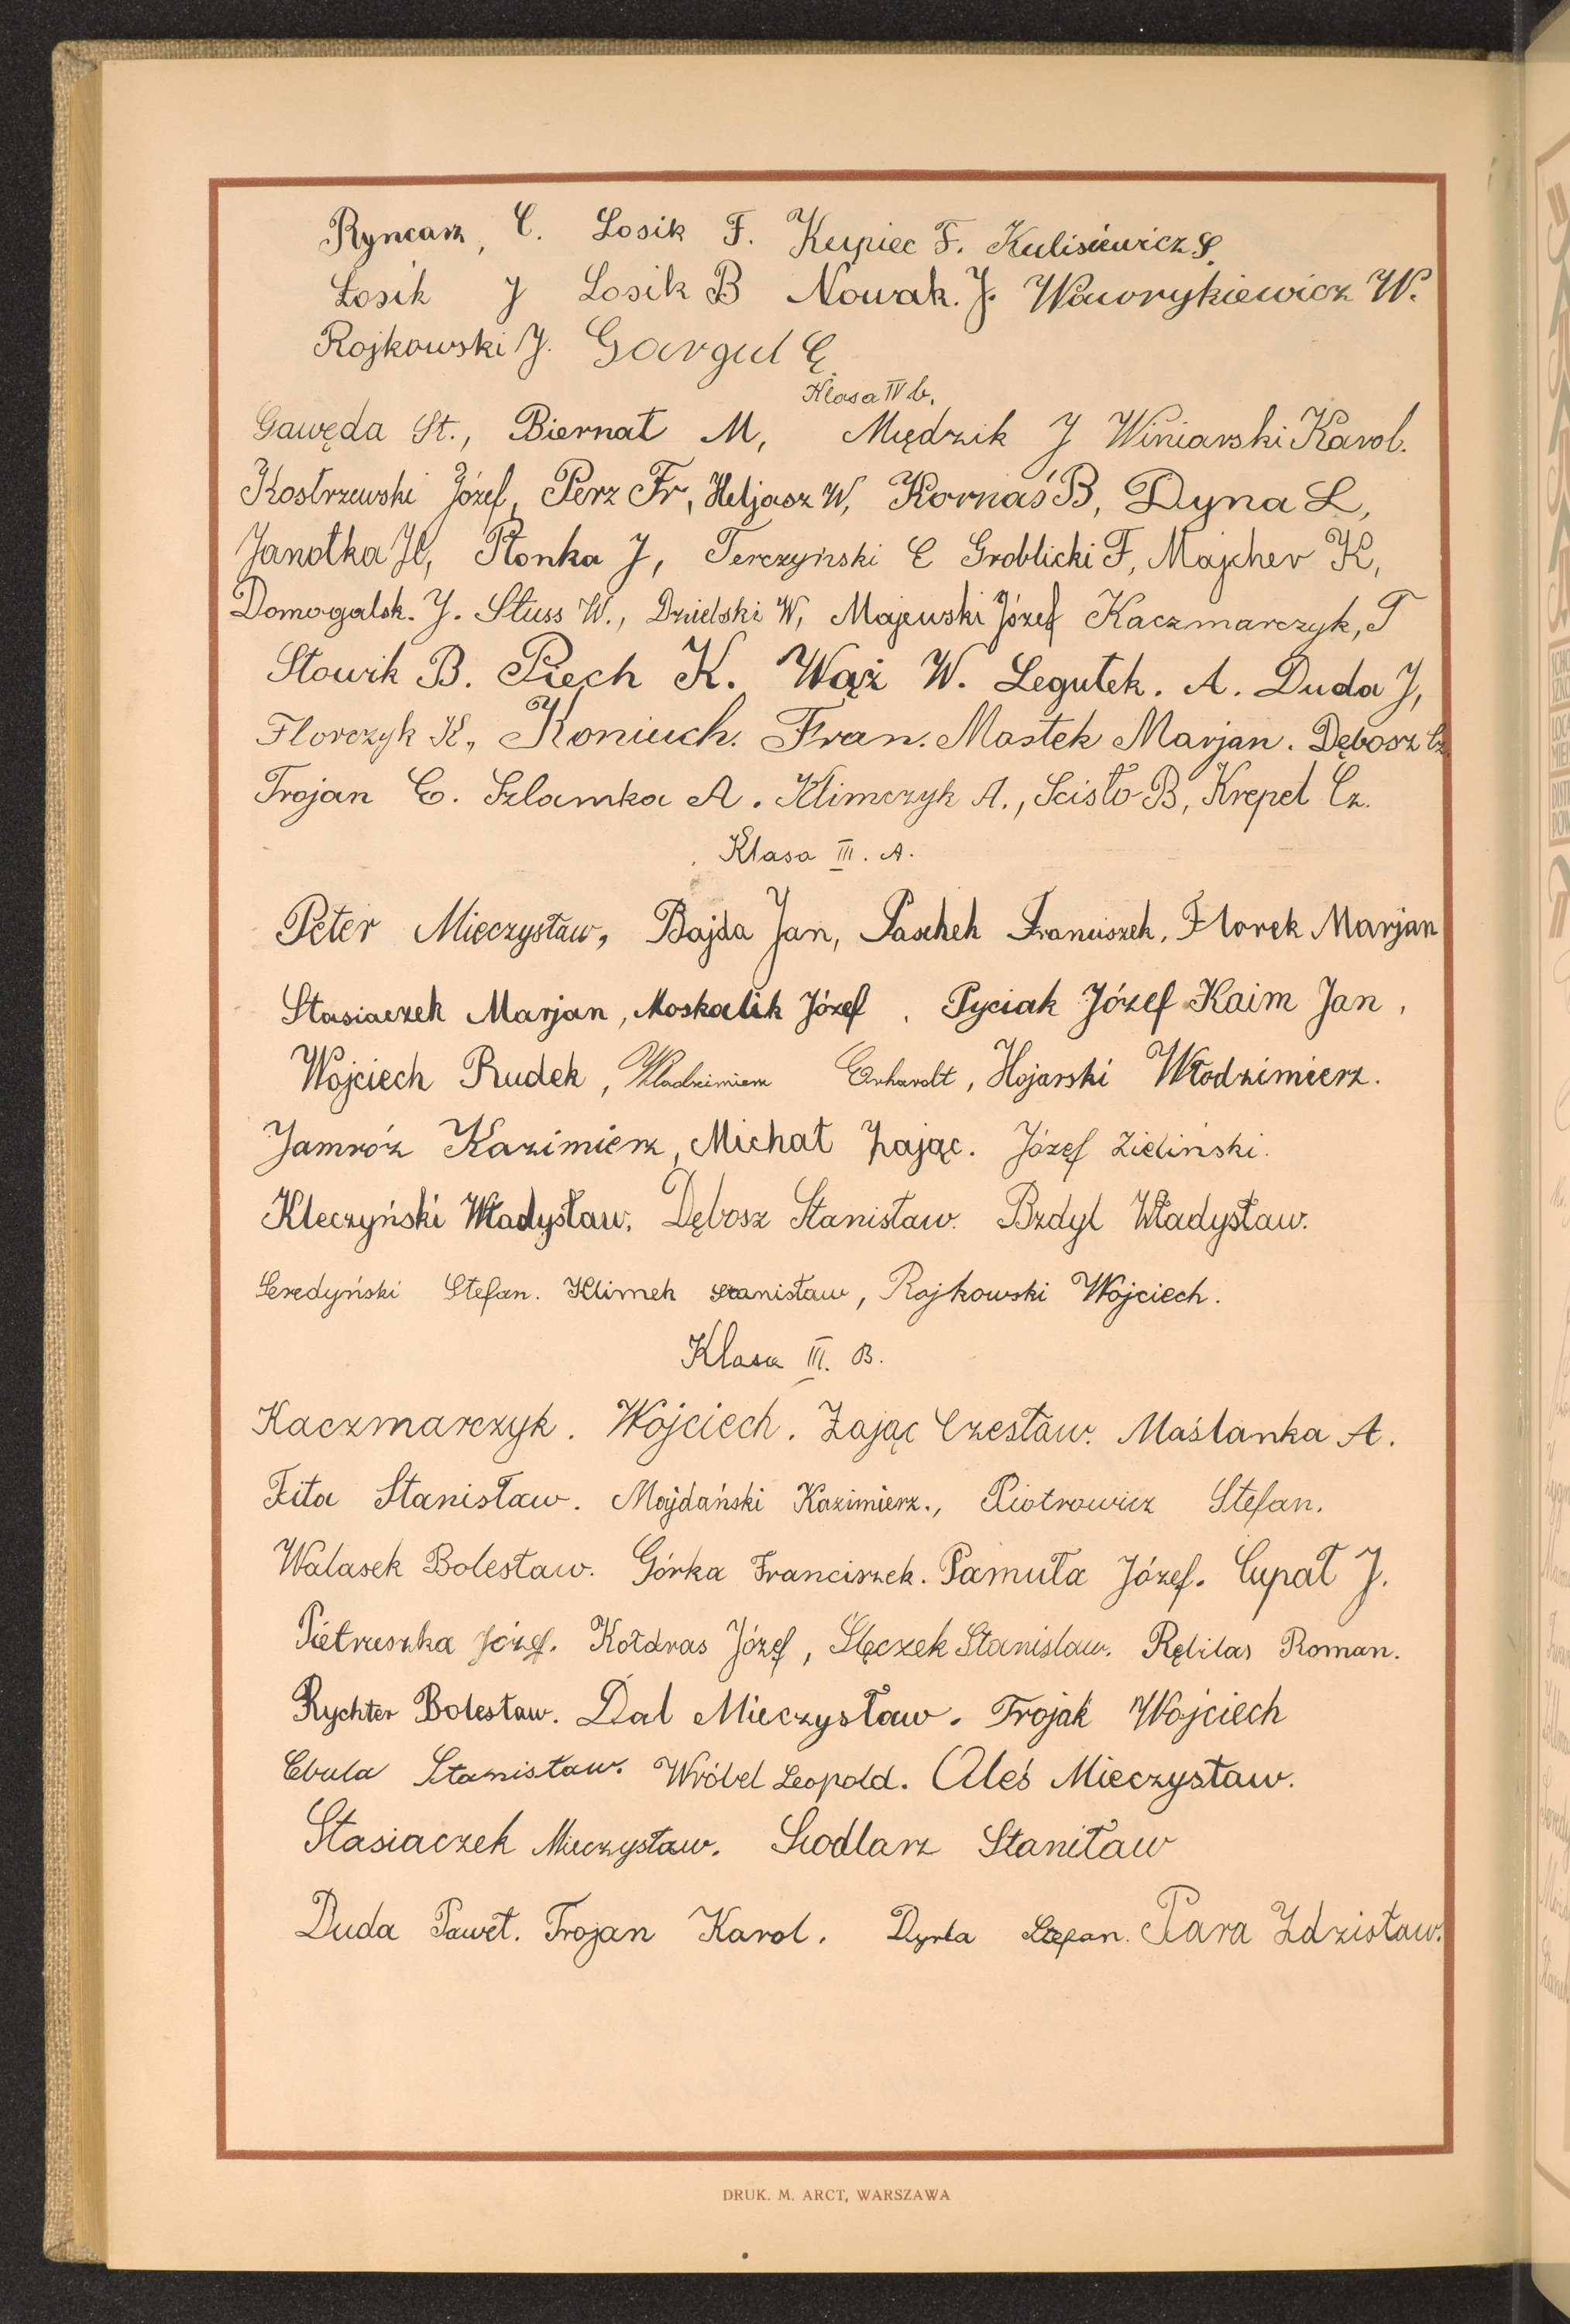 Ryncarz, C. Losik F. Kupiec F. Kulisiewicz S.
Łosik J Losik B Nowak. J. Wawrykiewicz W.
Rojkowski J. Gargul C.
Klasa IV b.
Gawęda St., Biernat M, Międzik J Winiarski Karol.
Kostrzewski Józef, Perz Fr, Heljasz W, Kornaś B, Dyna L,
Janotka H, Płonka J, Terczyński E Groblicki F, Majcher K,
Domogalsk. J. Stuss W., Dzielski W, Majewski Józef Kaczmarczyk, T
Słowik B. Piech K. Wąż W. Legutek. A. Duda J,
Florczyk K., Koniuch. Fran. Mastek Marjan. Dębosz Cz.
Trojan E. Szlamka A. Klimczyk A., Scisło B, Krepel Cz.
Klasa III. A.
Peter Mieczysław, Bajda Jan, Paschek Franciszek, Florek Marjan
Stasiaczek Marjan, Moskalik Józef. Pyciak Józef Kaim Jan,
Wojciech Rudek, Władzimierz Erhardt, Hojarski Włodzimierz.
Jamróz Kazimierz, Michał Zając. Józef Zieliński.
Kleczyński Władysław. Dębosz Stanisław. Bzdyl Władysław.
Seredyński Stefan. Klimek Stanisław, Rojkowski Wojciech.
Klasa III. B.
Kaczmarczyk. Wojciech. Zając Czesław. Maślanka A.
Fita Stanisław. Majdański Kazimierz., Piotrowicz Stefan.
Walasek Bolesław. Górka Franciszek. Pamuła Józef. Cupał J.
Pietruszka Józef. Kołdras Józef, Ślęczek Stanislaw. Rębilas Roman.
Rychter Bolesław. Dal Mieczysław. Trojak Wojciech
Cbula Stanisław. Wróbel Leopold. Aleś Mieczysław.
Stasiaczek Mieczysław. Siodlarz Stanitaw
Duda Paweł. Trojan Karol. Dyrla Stefan. Para Zdzisław.
DRUK. M. ARCT, WARSZAWA